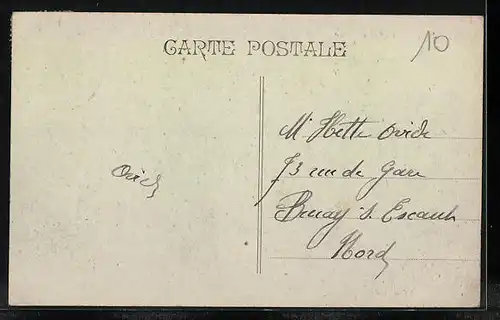 CARTE POSTALE
10
Mr Hette Ovide
73 rue de Gare
Bruay s. Escaut
Nord
Ovide